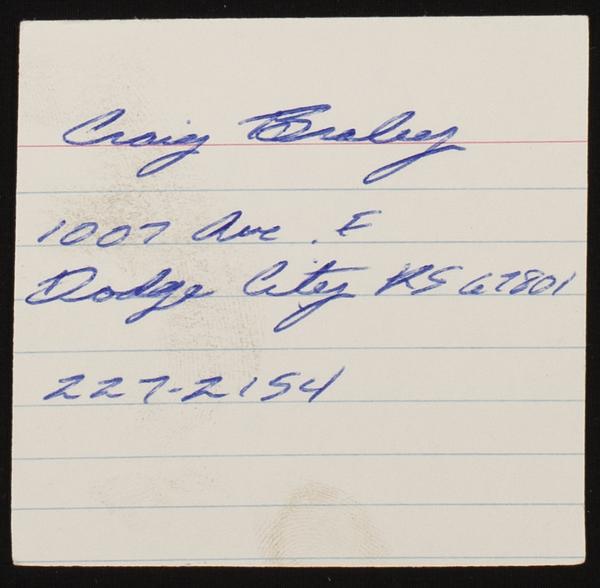 Craig Braley
1007 Ave. E
Dodge City KS 67801
227-2154